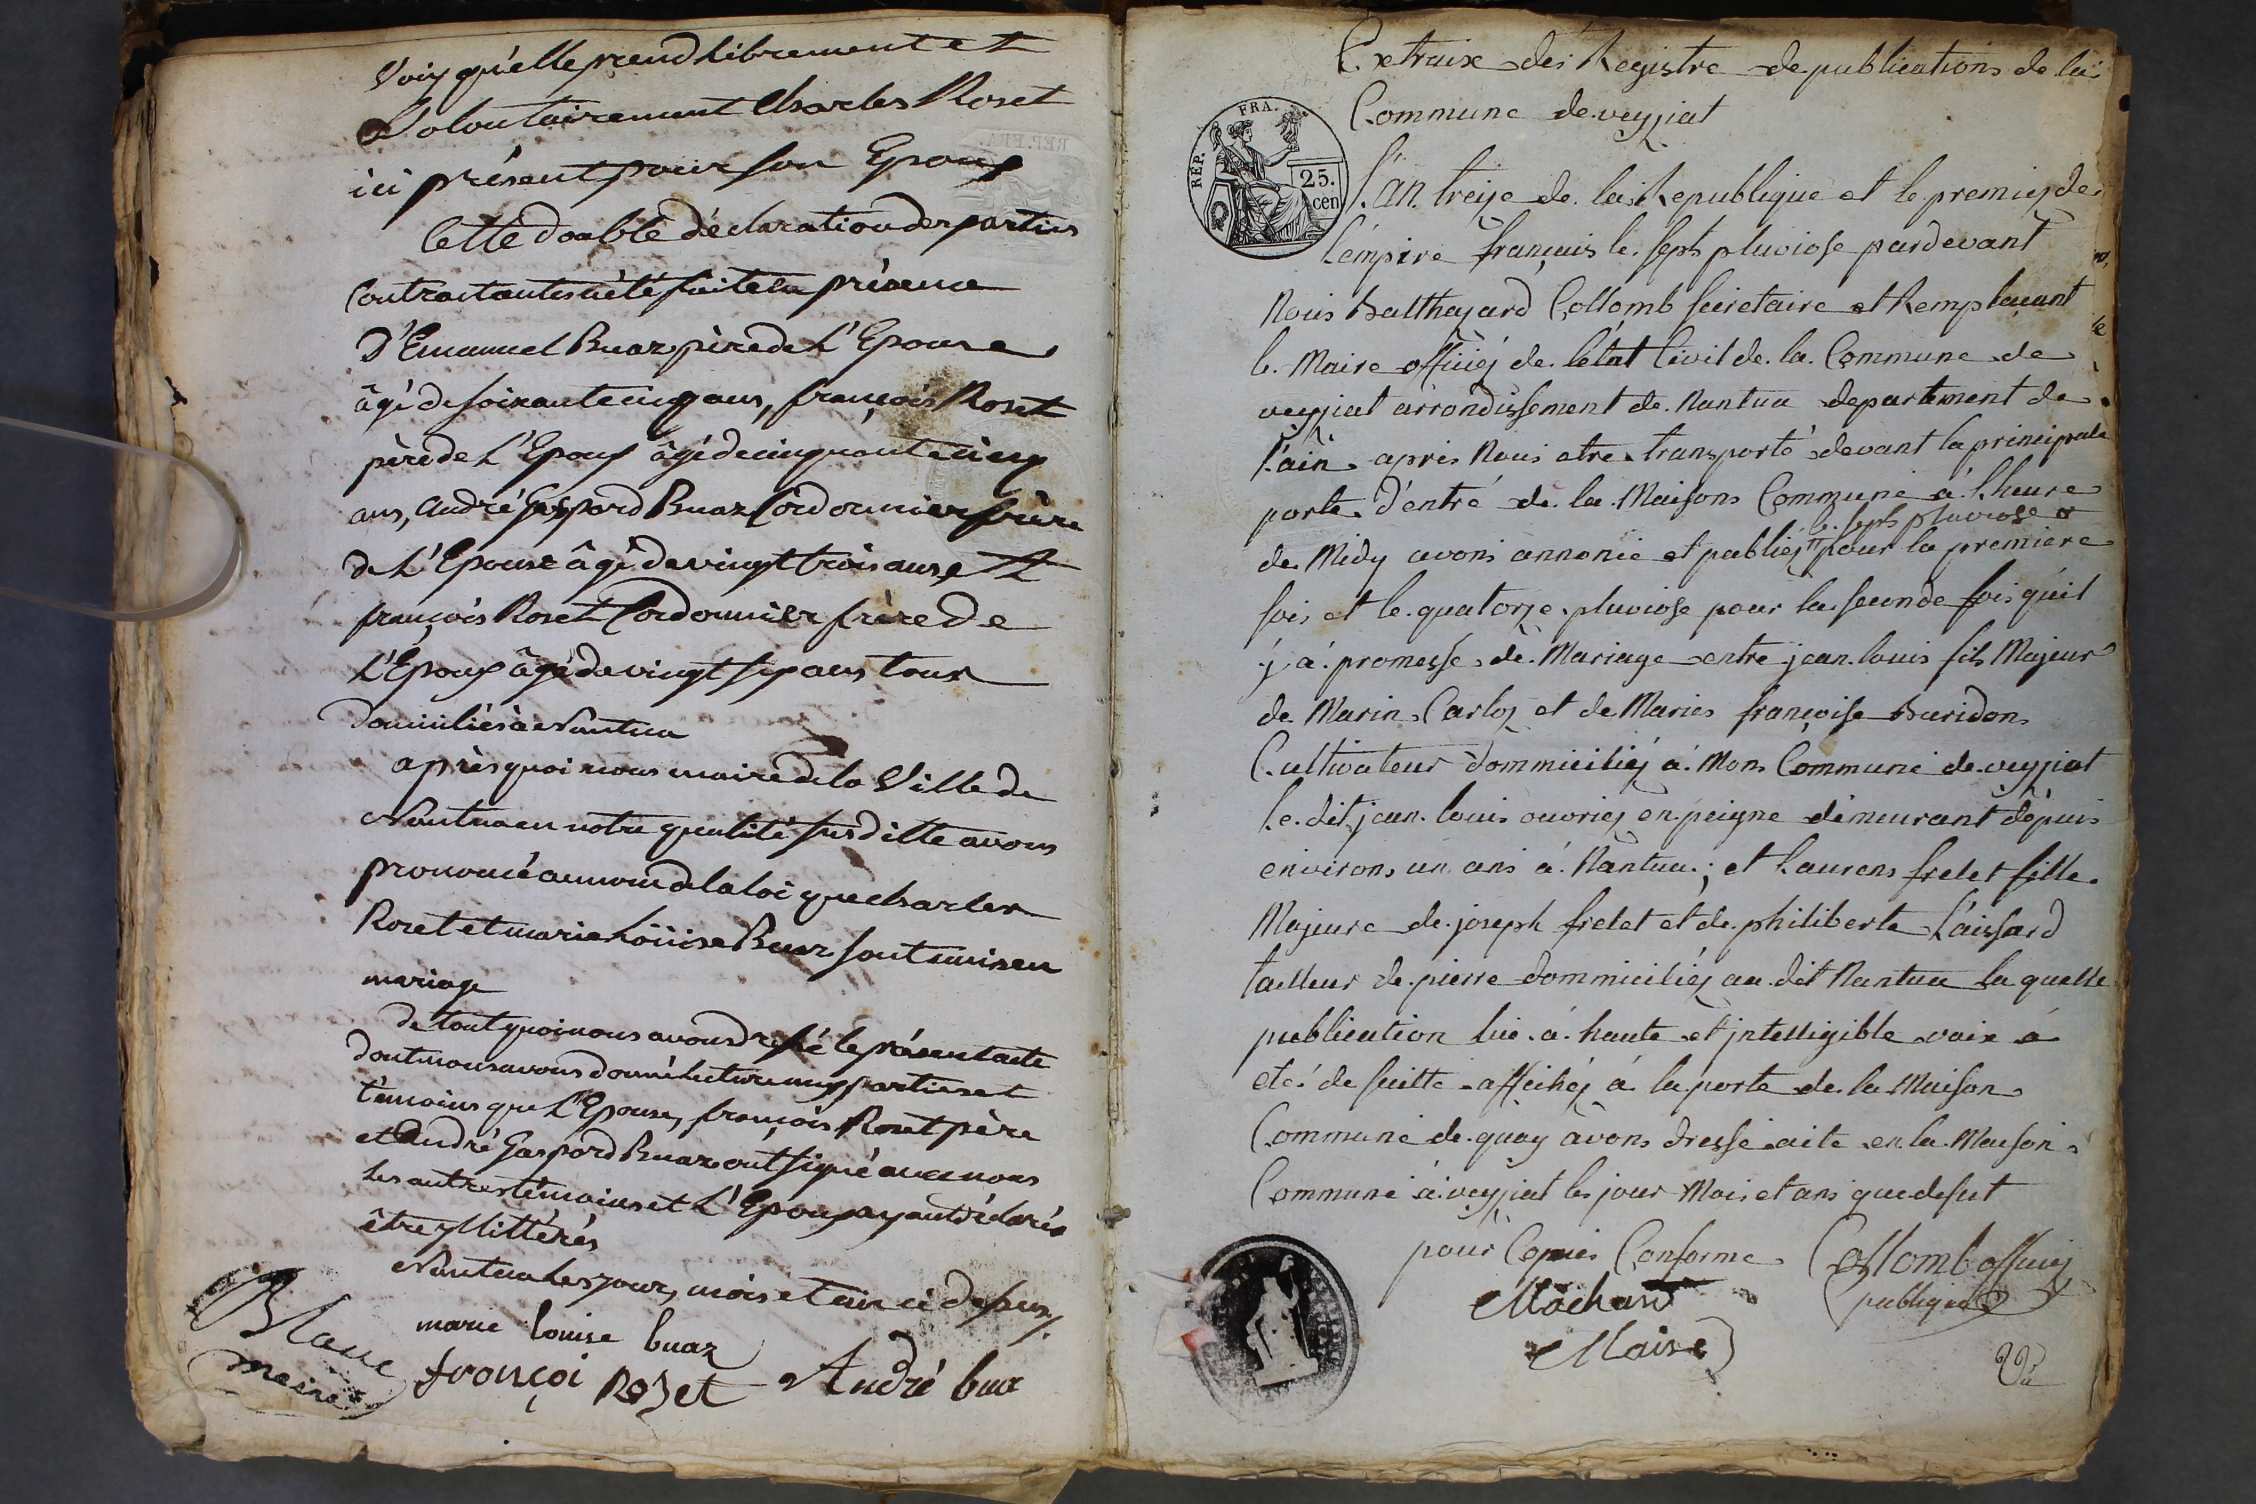 Voix qu'elle prend Librement et
Volontairement Charles Roset
ici présent pour son Epoux
Cette double déclaration des parties
Contractantes a été faite en présence
D'Emanuel Buaz père de L'Epouse
âgé de soixante cinq ans, françois Roset
père de L'Epoux âgé de cinquante cinq
ans, André Gaspard Buaz Cordonnier frère
de L'Epouse âgé de vingt trois ans, et
françois Roset Cordonnier frère de
L'Epoux âgé de vingt sept ans tous
Domiciliés à Nantua
après quoi nous maire de la Ville de
Nantua en notre qualité susditte avons
prononcé au nom de la loi que charles
Roset et marie Loüise Buaz sont unis en
mariage
de tout quoi nous avons dressé le présent acte
dont nous avons donné lecture aux parties et
témoins que L'Epouse, françois Roset père
et André Gaspard Buaz ont signé avec nous
les autres témoins et L'Epoux ayant déclarés
être yllittérés
Nantua les jour, mois et an ci dessus ./.
marie louise buaz
Blanc
maire
françoi Rozet André bua
Extraix des Registre de publications de la
Commune de veyziat
REP. FRA.
25.
cen
L'an treize de la Republique et le premiez de
L'empire français le sept pluviose pardevant
Nous Balthazard Collomb secretaire et Remplaçant
le Maire officiez de letat Civil de la Commune de
veyziat arrondissement de Nantua departement de
l'ain apres Nous etre transporté devant la principale
porte d'entré de la Maisons Commune à l'heure
le sept pluviose
de Midy avons annoncé et publiez pour la premiere
fois et le quatorze pluviose pour la seconde fois qu'il
y à promesse de Mariage entre jean louis fils Majeur
de Marin Carloz et de Maries françoise Buridons
Cultivateur dommiciliez à Mons Commune de veyziat
le dit jean louis ouvriez en peigne demeurant depuis
environs un ans à Nantua ; et Laurens frelet fille
Majeure de joseph frelet et de philiberte Laissard
tailleur de pierre dommiciliez au dit Nantua la quelle
publication lue à haute et jntelligible voix a
eté de suitte affichéz à la porte de la Maison
Commune de quoy avons dressé acte en la Maison
Commune à veyziat les jour Mois et ans que desut
pour Copies Conforme Collomb officiez
publique
Mochard
Maire
Vu